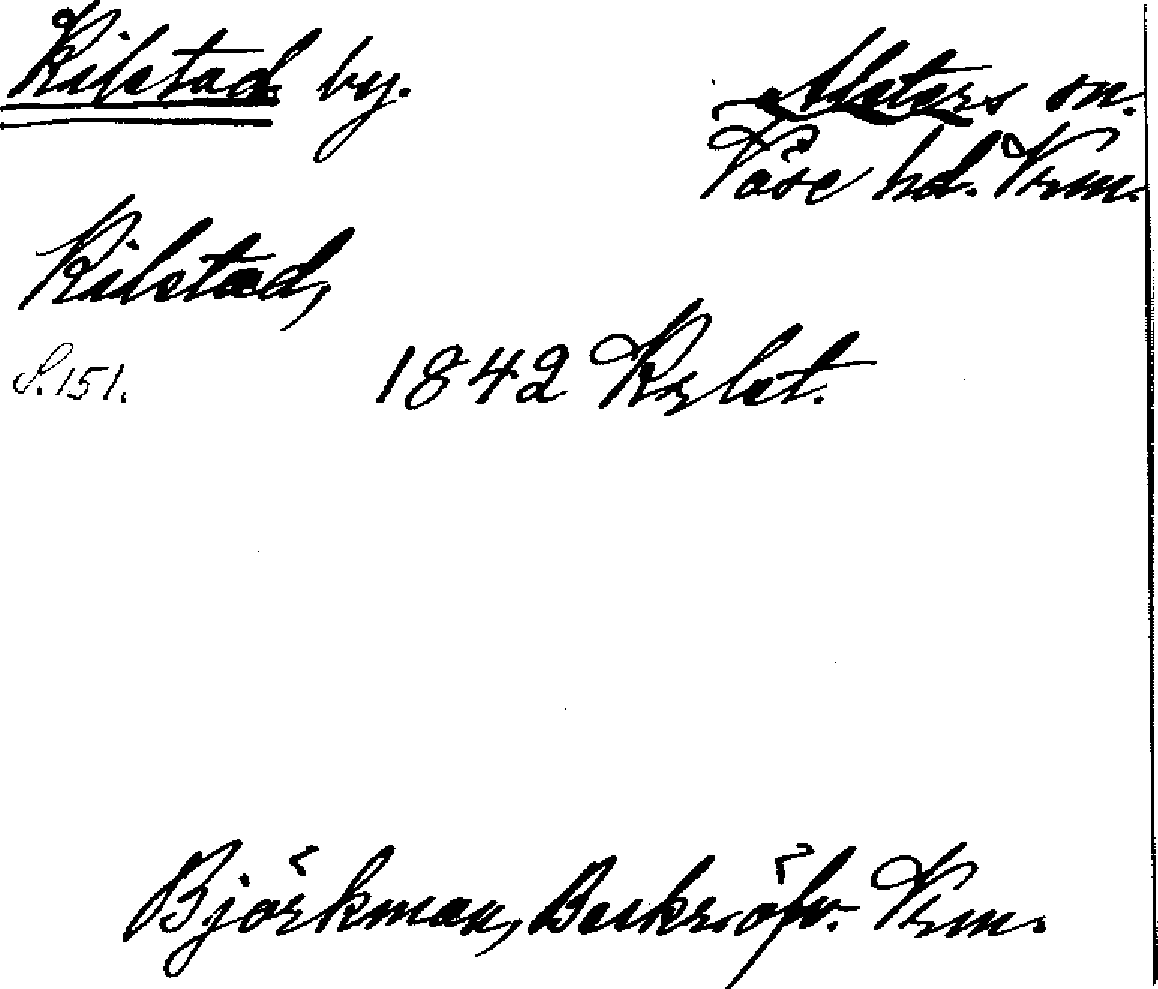 Kilstad by.
Alsters sn.
Väse hd. Vrm.
Kilstad,
S. 151.
1842
Björkman, Beskr. öfv. Vrm.